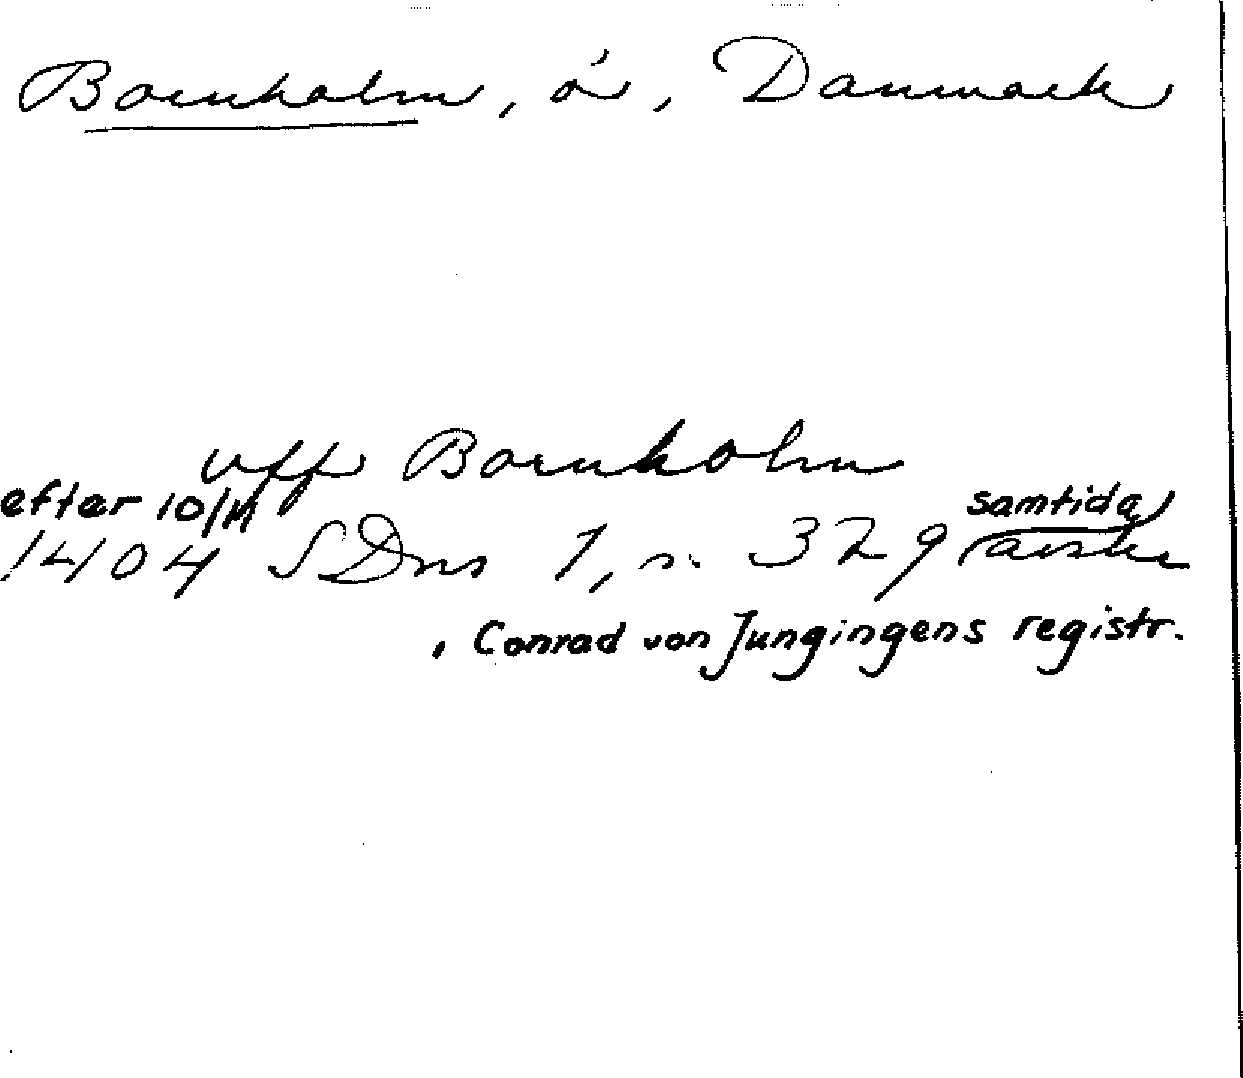 Bornholm, ö, Danmark
vff Bornholm
efter 10/11 samtida
1404 SDns 1, s. 329
, Conrad von Jungingens registr.